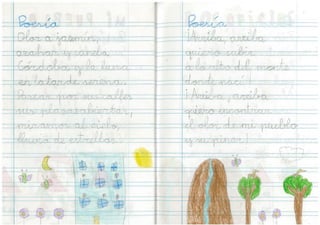 Poesía
Olor a jazmín,
azahar y canela
Córdoba y la luna
en la tarde serena.
Pasear por sus calles
sus plazas abiertas,
miramos al cielo,
lleno de estrellas.
Poesía
¡Arriba, arriba
quiero subir
a lo alto del monte
donde nací!
¡Arriba, arriba
quiero encontrar
el olor de mi pueblo
y su pinar!